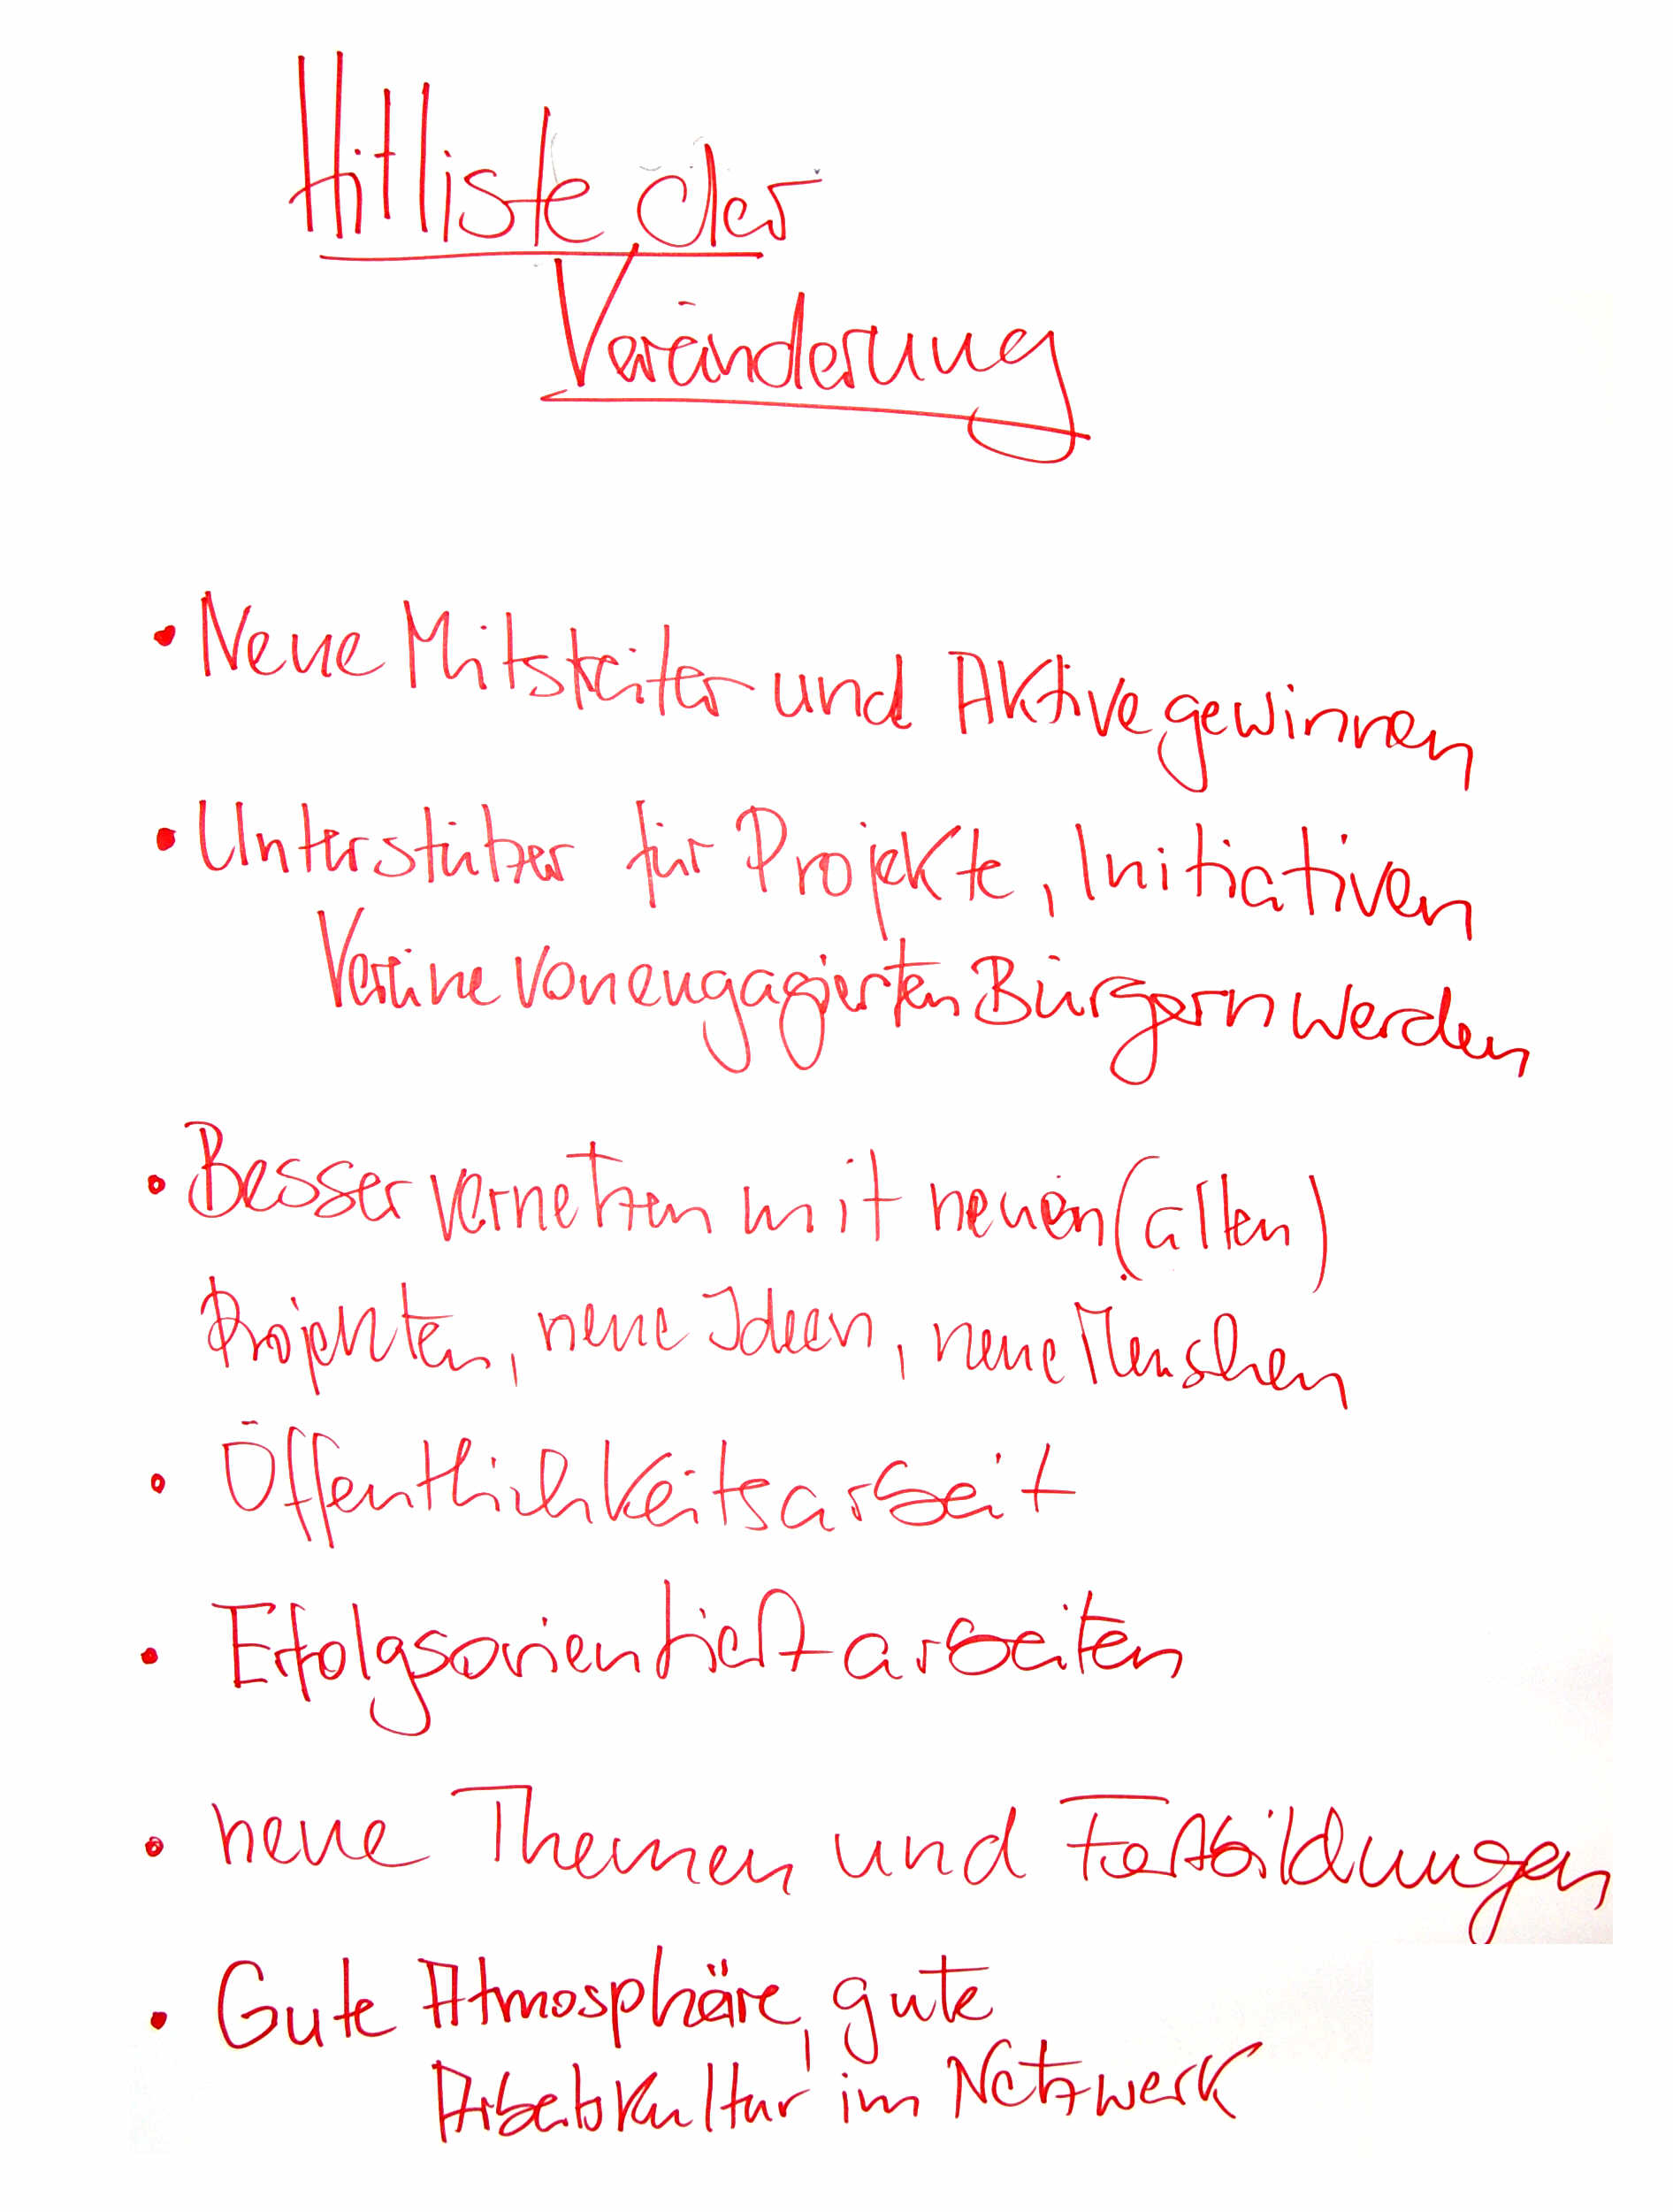 Hitliste der
Veränderung
• Neue Mitstreiter und Aktive gewinnen
• Unterstützer für Projekte, Initiativen
Vereine von engagierten Bürgern werden
• Besser vernetzen mit neuen (alten)
Projekten, neue Ideen, neue Menschen
• Öffentlichkeitsarbeit
• Erfolgsorientiert arbeiten
• neue Themen und Fortbildungen
• Gute Atmosphäre, gute
Arbeitskultur im Netzwerk